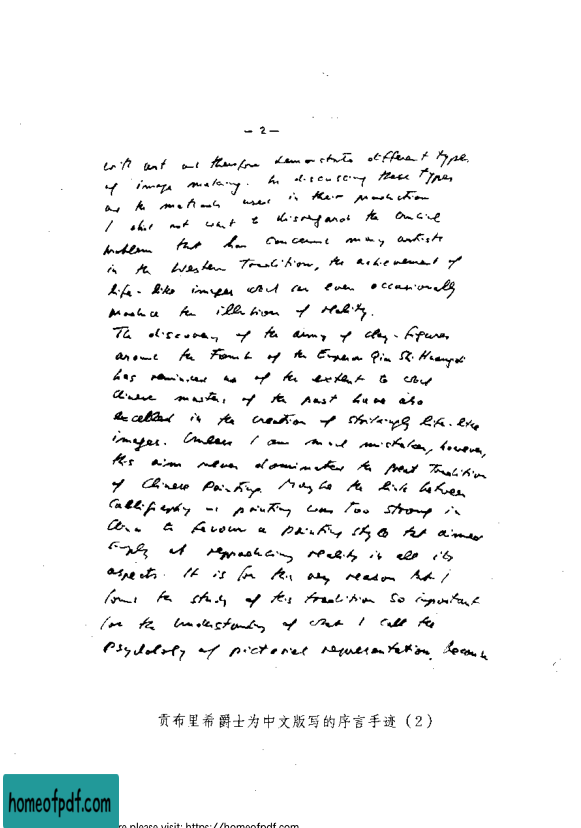 — 2 —
with art and therefore demonstrate different types
of image making. In discussing these types
and the methods used in their production
I did not want to disregard the crucial
problem that has concerned many artists
in the Western Tradition, the achievement of
life-like images which can even occasionally
produce the illusion of reality.
The discovery of the army of clay-figures
around the Tomb of the Emperor Qin Shi Huangdi
has reminded us of the extent to which
Chinese masters of the past have also
excelled in the creation of strikingly life-like
images. Unless I am much mistaken, however,
this aim never dominated the great Tradition
of Chinese Painting. Maybe the link between
Calligraphy and painting was too strong in
China to favour a painting style that aimed
simply at reproducing reality in all its
aspects. It is for this very reason that I
found the study of this tradition so important
for the understanding of what I call the
Psychology of pictorial representation, because
贡布里希爵士为中文版写的序言手迹（2）
homeofpdf.com
re please visit: https://homeofpdf.com